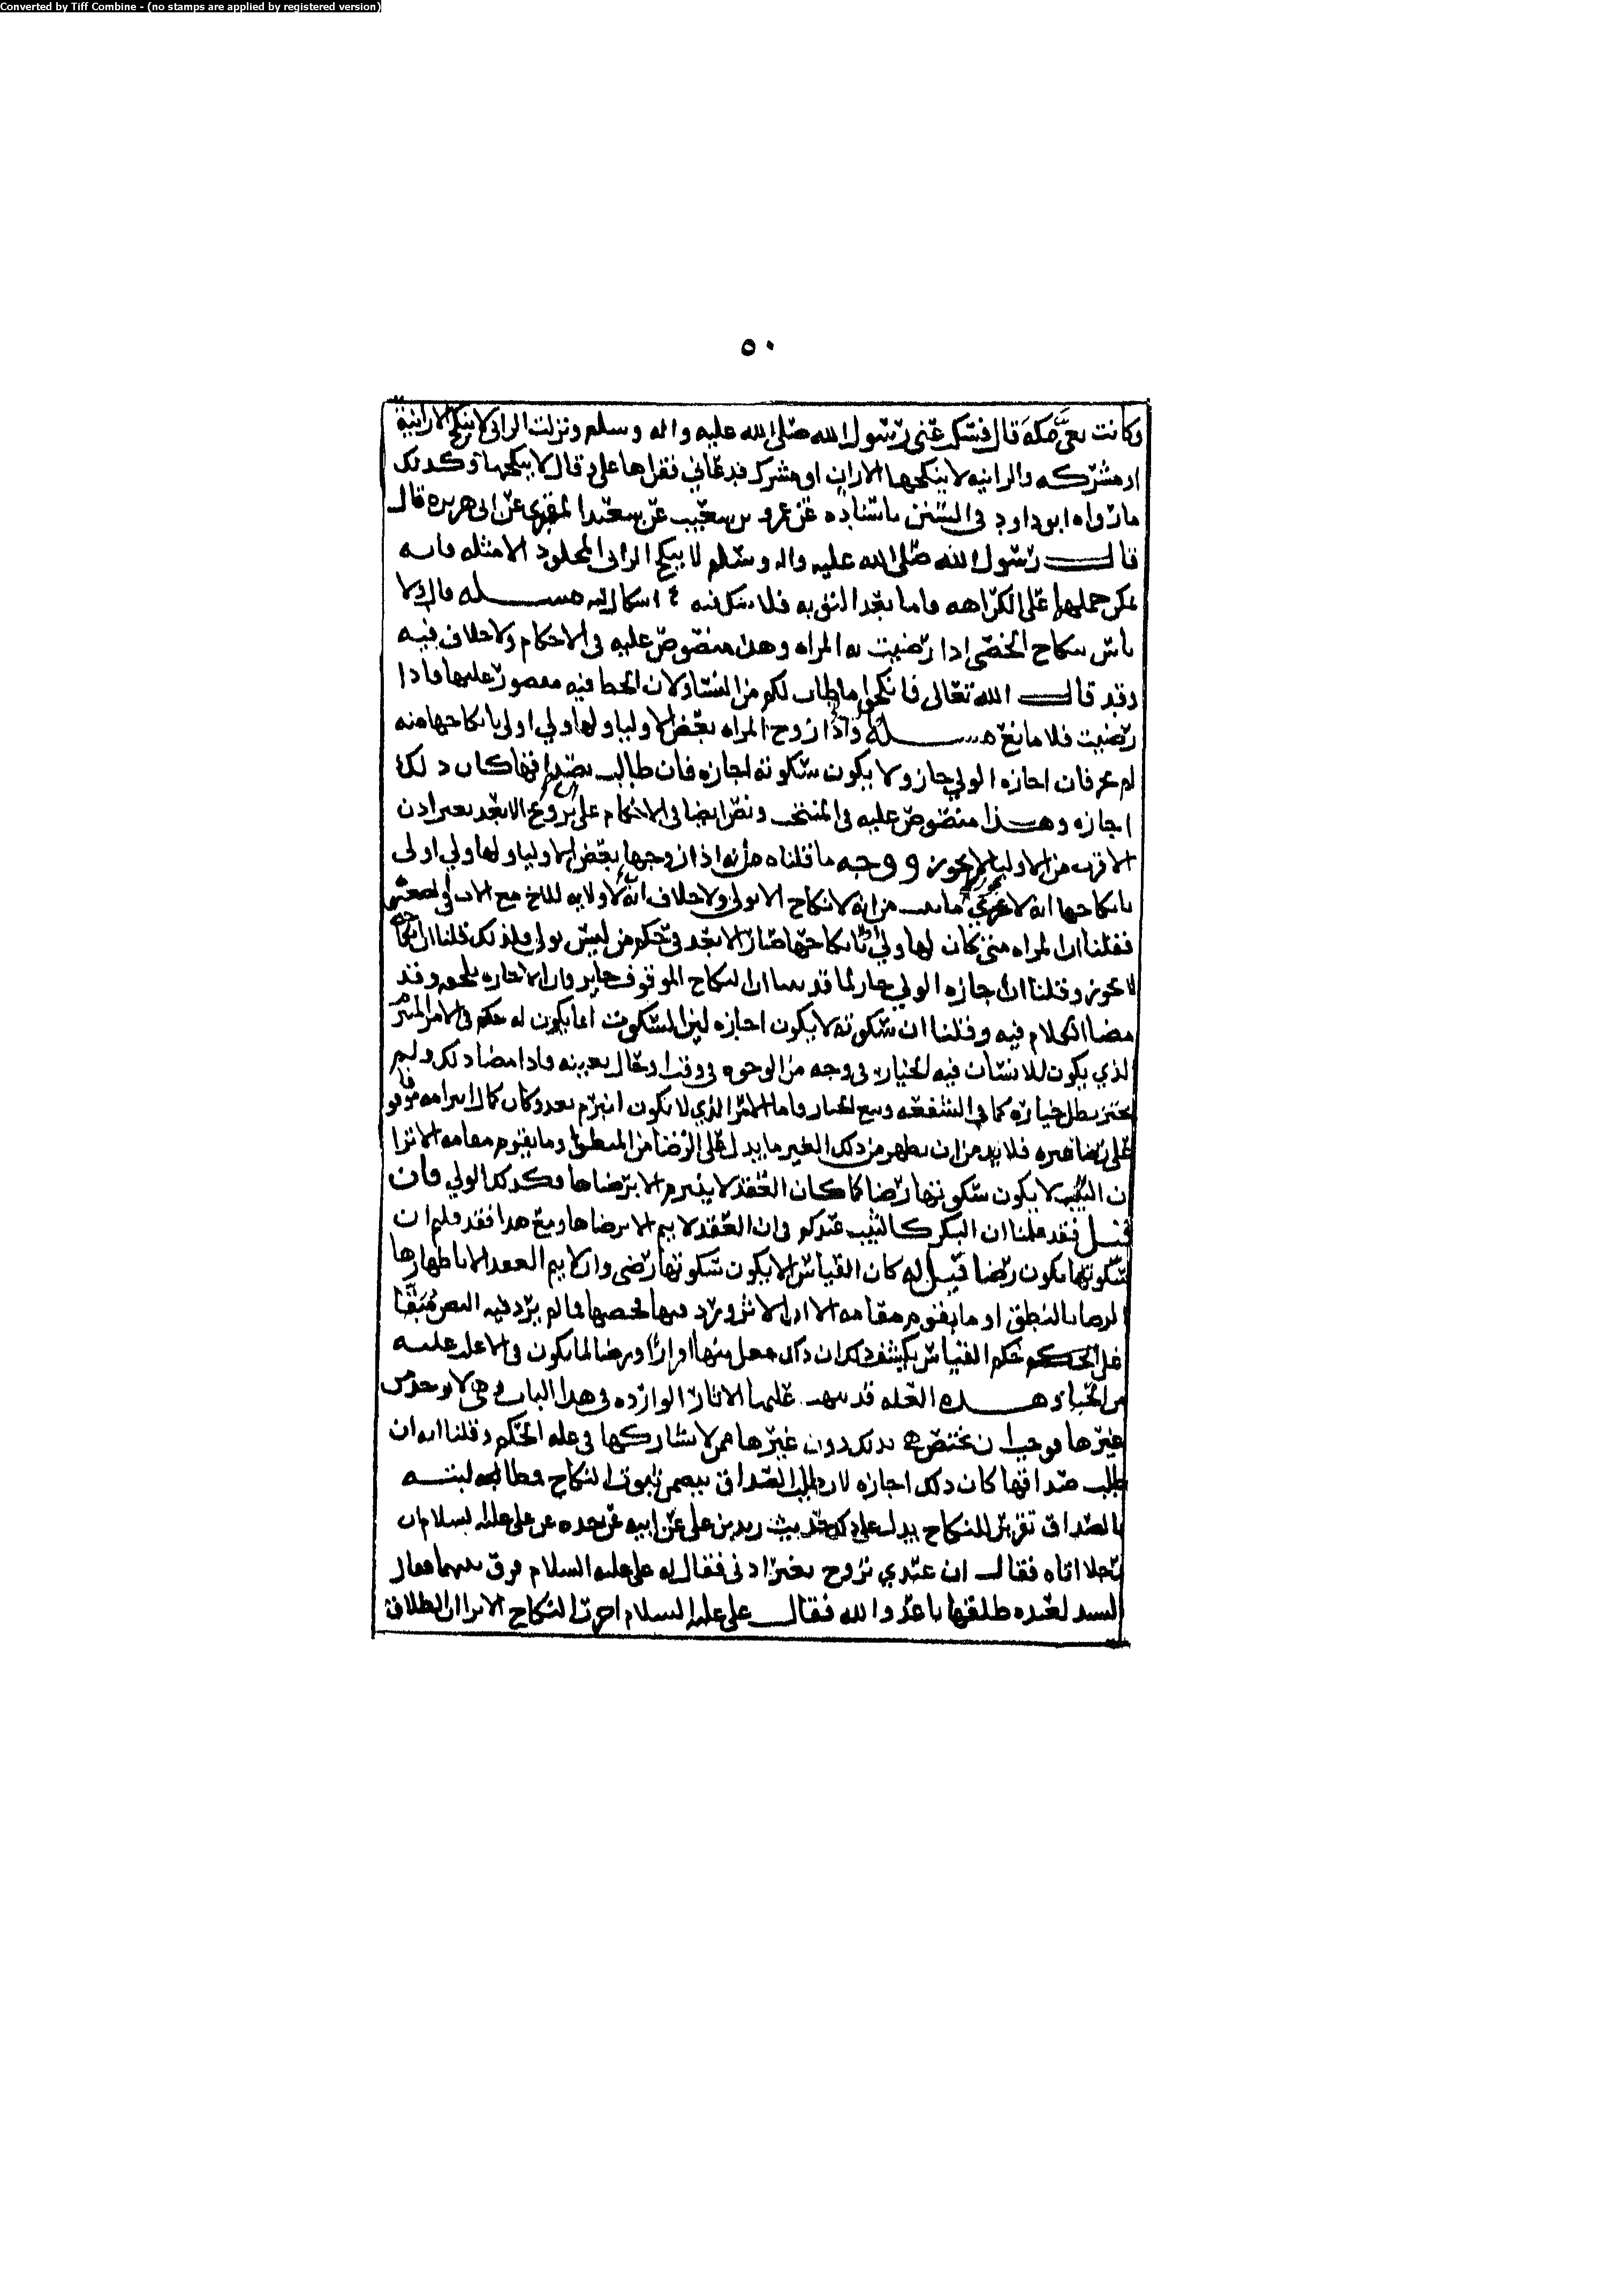 Converted by Tiff Combine - (no stamps are applied by registered version)
٥٠
وكانت بغي مكة قال فسكت عني رسول الله صلى الله عليه واله وسلم ونزلت الزاني لا ينكح الا زانية
او مشركه والزانيه لا ينكحها الا زان او مشرك فدعاني فقراها علي وقال لا تنكحها وكذلك
ما رواه ابو داود في السنن باسناده عن عمرو بن شعيب عن سعيد المقبري عن ابي هريره قال
قال رسول الله صلى الله عليه واله وسلم لا ينكح الزاني المجلود الا مثله فانه
يمكن حملها على الكراهه فاما بعد التوبه فلا شك فيه مسله قال ولا
باس بنكاح الخصي اذا رضيت به المراه وهذا منصوص عليه في الاحكام ولا خلاف فيه
وقد قال الله تعالى فانكحوا ما طاب لكم من النسا ولان الحظ فيه مقصور عليها فاذا
رضيت فلا مانع مسله واذا زوج المراه بعض الاوليا ولها ولي اولى بانكاحها منه
ثم عرف فان اجازه الولي جاز ولا يكون سكوته اجازه فان طالب بصداقها كان ذلك
اجازه وهذا منصوص عليه في المنتخب ونص ايضا في الاحكام على تزويج الابعد بغير اذن
الاقرب من الاوليا لا يجوز ووجه ما قلناه من انه اذا زوجها بعض الاوليا ولها ولي اولى
بانكاحها انه لا يجوز ما ثبت من انه لا نكاح الا بولي ولا خلاف انه لا ولايه للاخ مع الاب
فقلنا ان المراه متى كان لها ولي اولى بانكاحها صار الابعد في حكم من ليس بولي فلذلك قلنا ان نكاحه
لا يجوز وقلنا ان اجازه الولي جاز لما قد بينا ان النكاح الموقوف جايز وان الاجازه تلحقه وقد
مضا الكلام فيه وقلنا ان سكوته لا يكون اجازه لان السكوت انما يكون له حكم في الامر
الذي يكون للانسان فيه الخيار في وجه من الوجوه في وقت او حال بعينه فاذا مضا ذلك ولم
يختر بطل خياره كما في الشفعه وبيع الخيار واما الامر الذي لا يكون انبرم بعد وكان كمال انبرامه موقوفا
على رضا غيره فلا بد من ان يظهر من ذلك الغير ما يدل على الرضا من المنطق وما يقوم مقامه الا ترا
ان الثيب لا يكون سكوتها رضا لما كان العقد لا ينبرم الا برضاها وكذلك الولي فان
قيل فقد قلنا ان البكر كالثيب عندكم في ان العقد لا يتم الا برضاها ومع هذا فقد قلتم ان
سكوتها يكون رضا قيل له كان القياس الا يكون سكوتها رضى وان لا يتم العقد الا باظهارها
الرضا بالنطق او ما يقوم مقامه الا ان الاثر ورد فيها فخصها فما لم يرد فيه النص مبقا
على حكم القياس يكشف ذلك ان ذلك جعل منها اقرارا ورضا لما يكون في الاغلب عليه
من الحياء وهذه العله قد نبهت عليها الاثار الوارده في هذا الباب وهي لا توجد في
غيرها فوجب ان تختص هي بذلك دون غيرها ممن لا يشاركها في عله الحكم وقلنا انه ان
طلب صداقها كان ذلك اجازه لان طلب الصداق يتضمن ثبوت النكاح ومطالبته
بالصداق تقرير للنكاح يدل على ذلك حديث زيد بن علي عن ابيه عن جده عن علي عليه السلام ان
رجلا اتاه فقال ان عبدي تزوج بغير اذني فقال له علي عليه السلام فرق بينهما فقال
السيد لعبده طلقها يا عدو الله فقال علي عليه السلام اجزت النكاح الا ترا ان الطلاق